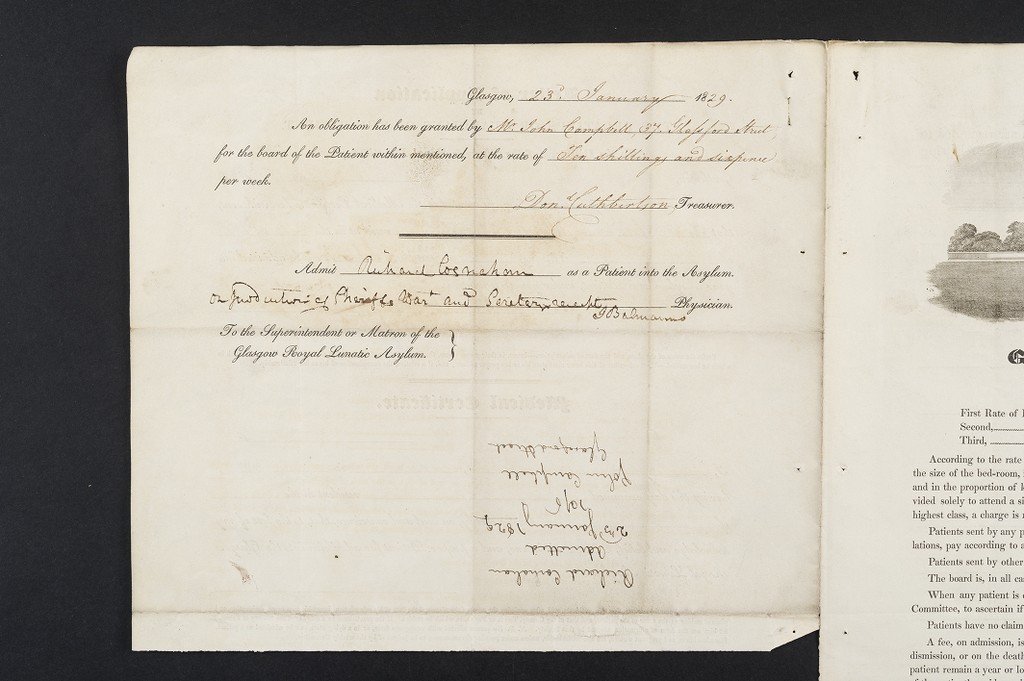 Glasgow, 23d. January 1829.
An obligation has been granted by Mr. John Campbell, 37, Glassford Street
for the board of the Patient within mentioned, at the rate of Ten shillings and sixpence
per week.
Don. Cuthbertson Treasurer.
Admit Richard as a Patient into the Asylum.
on production of Sheriffs Wart. and Physician.
J Balmanno
To the Superintendent or Matron of the
Glasgow Royal Lunatic Asylum.
Medical Certificate.
Richard
Admitted
January 1829
10/6
John Campbell
Street
G
First Rate of
Second,
Third,
According to the rate
the size of the bed-room,
and in the proportion of
vided solely to attend a
highest class, a charge is
Patients sent by any
lations, pay according to
Patients sent by other
The board is, in all
When any patient is
Committee, to ascertain if
Patients have no claim
A fee, on admission, is
dismission, or on the death
patient remain a year or